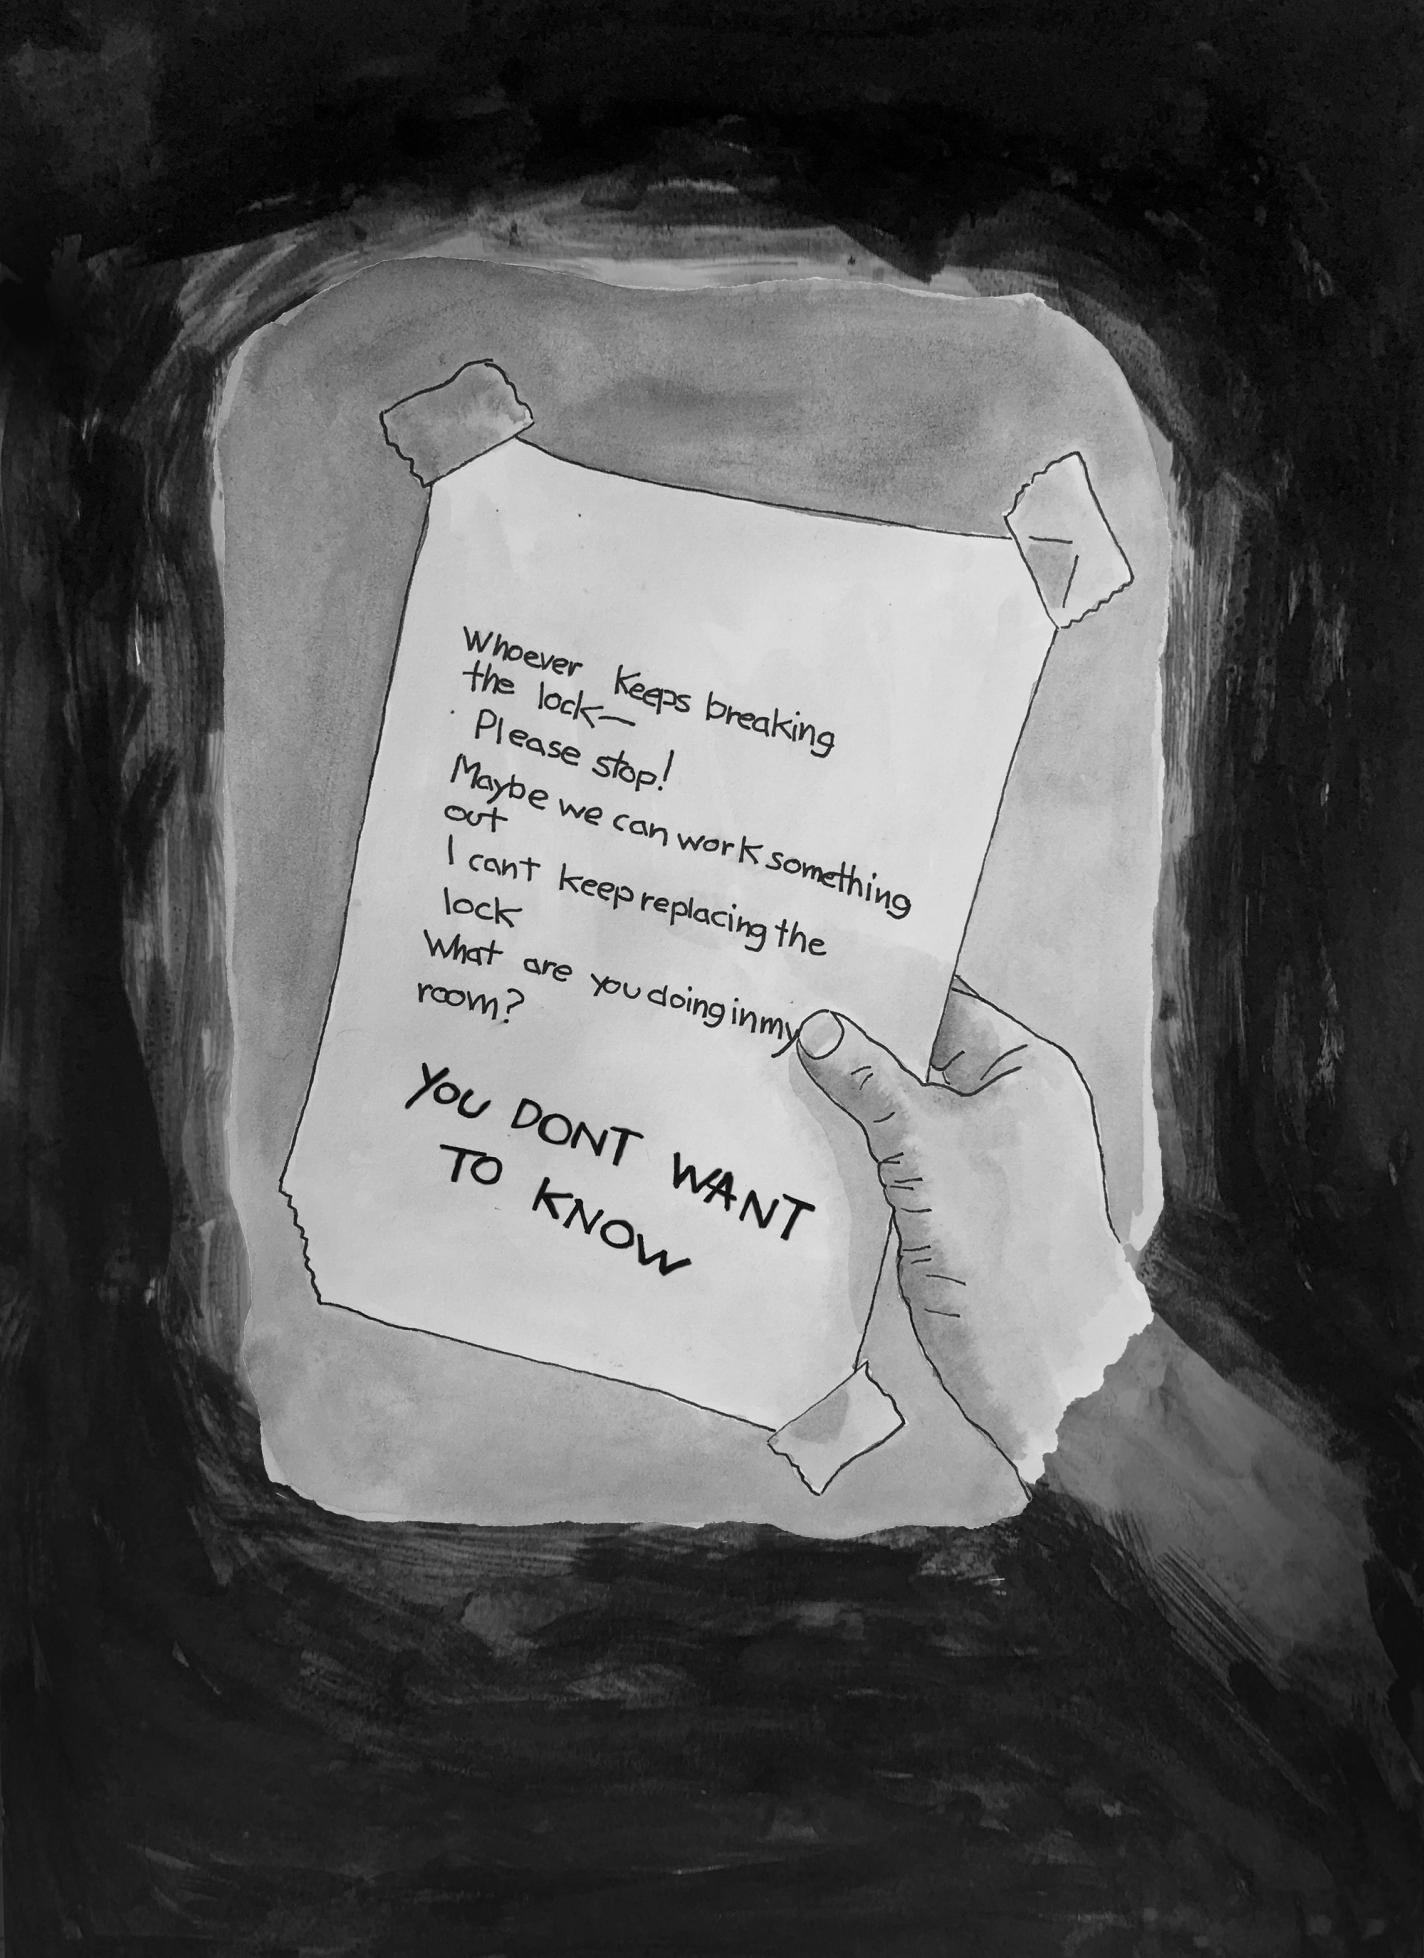 Whoever keeps breaking
the lock—
Please stop!
Maybe we can work something
out
I cant keep replacing the
lock
What are you doing in my
room?
YOU DONT WANT
TO KNOW